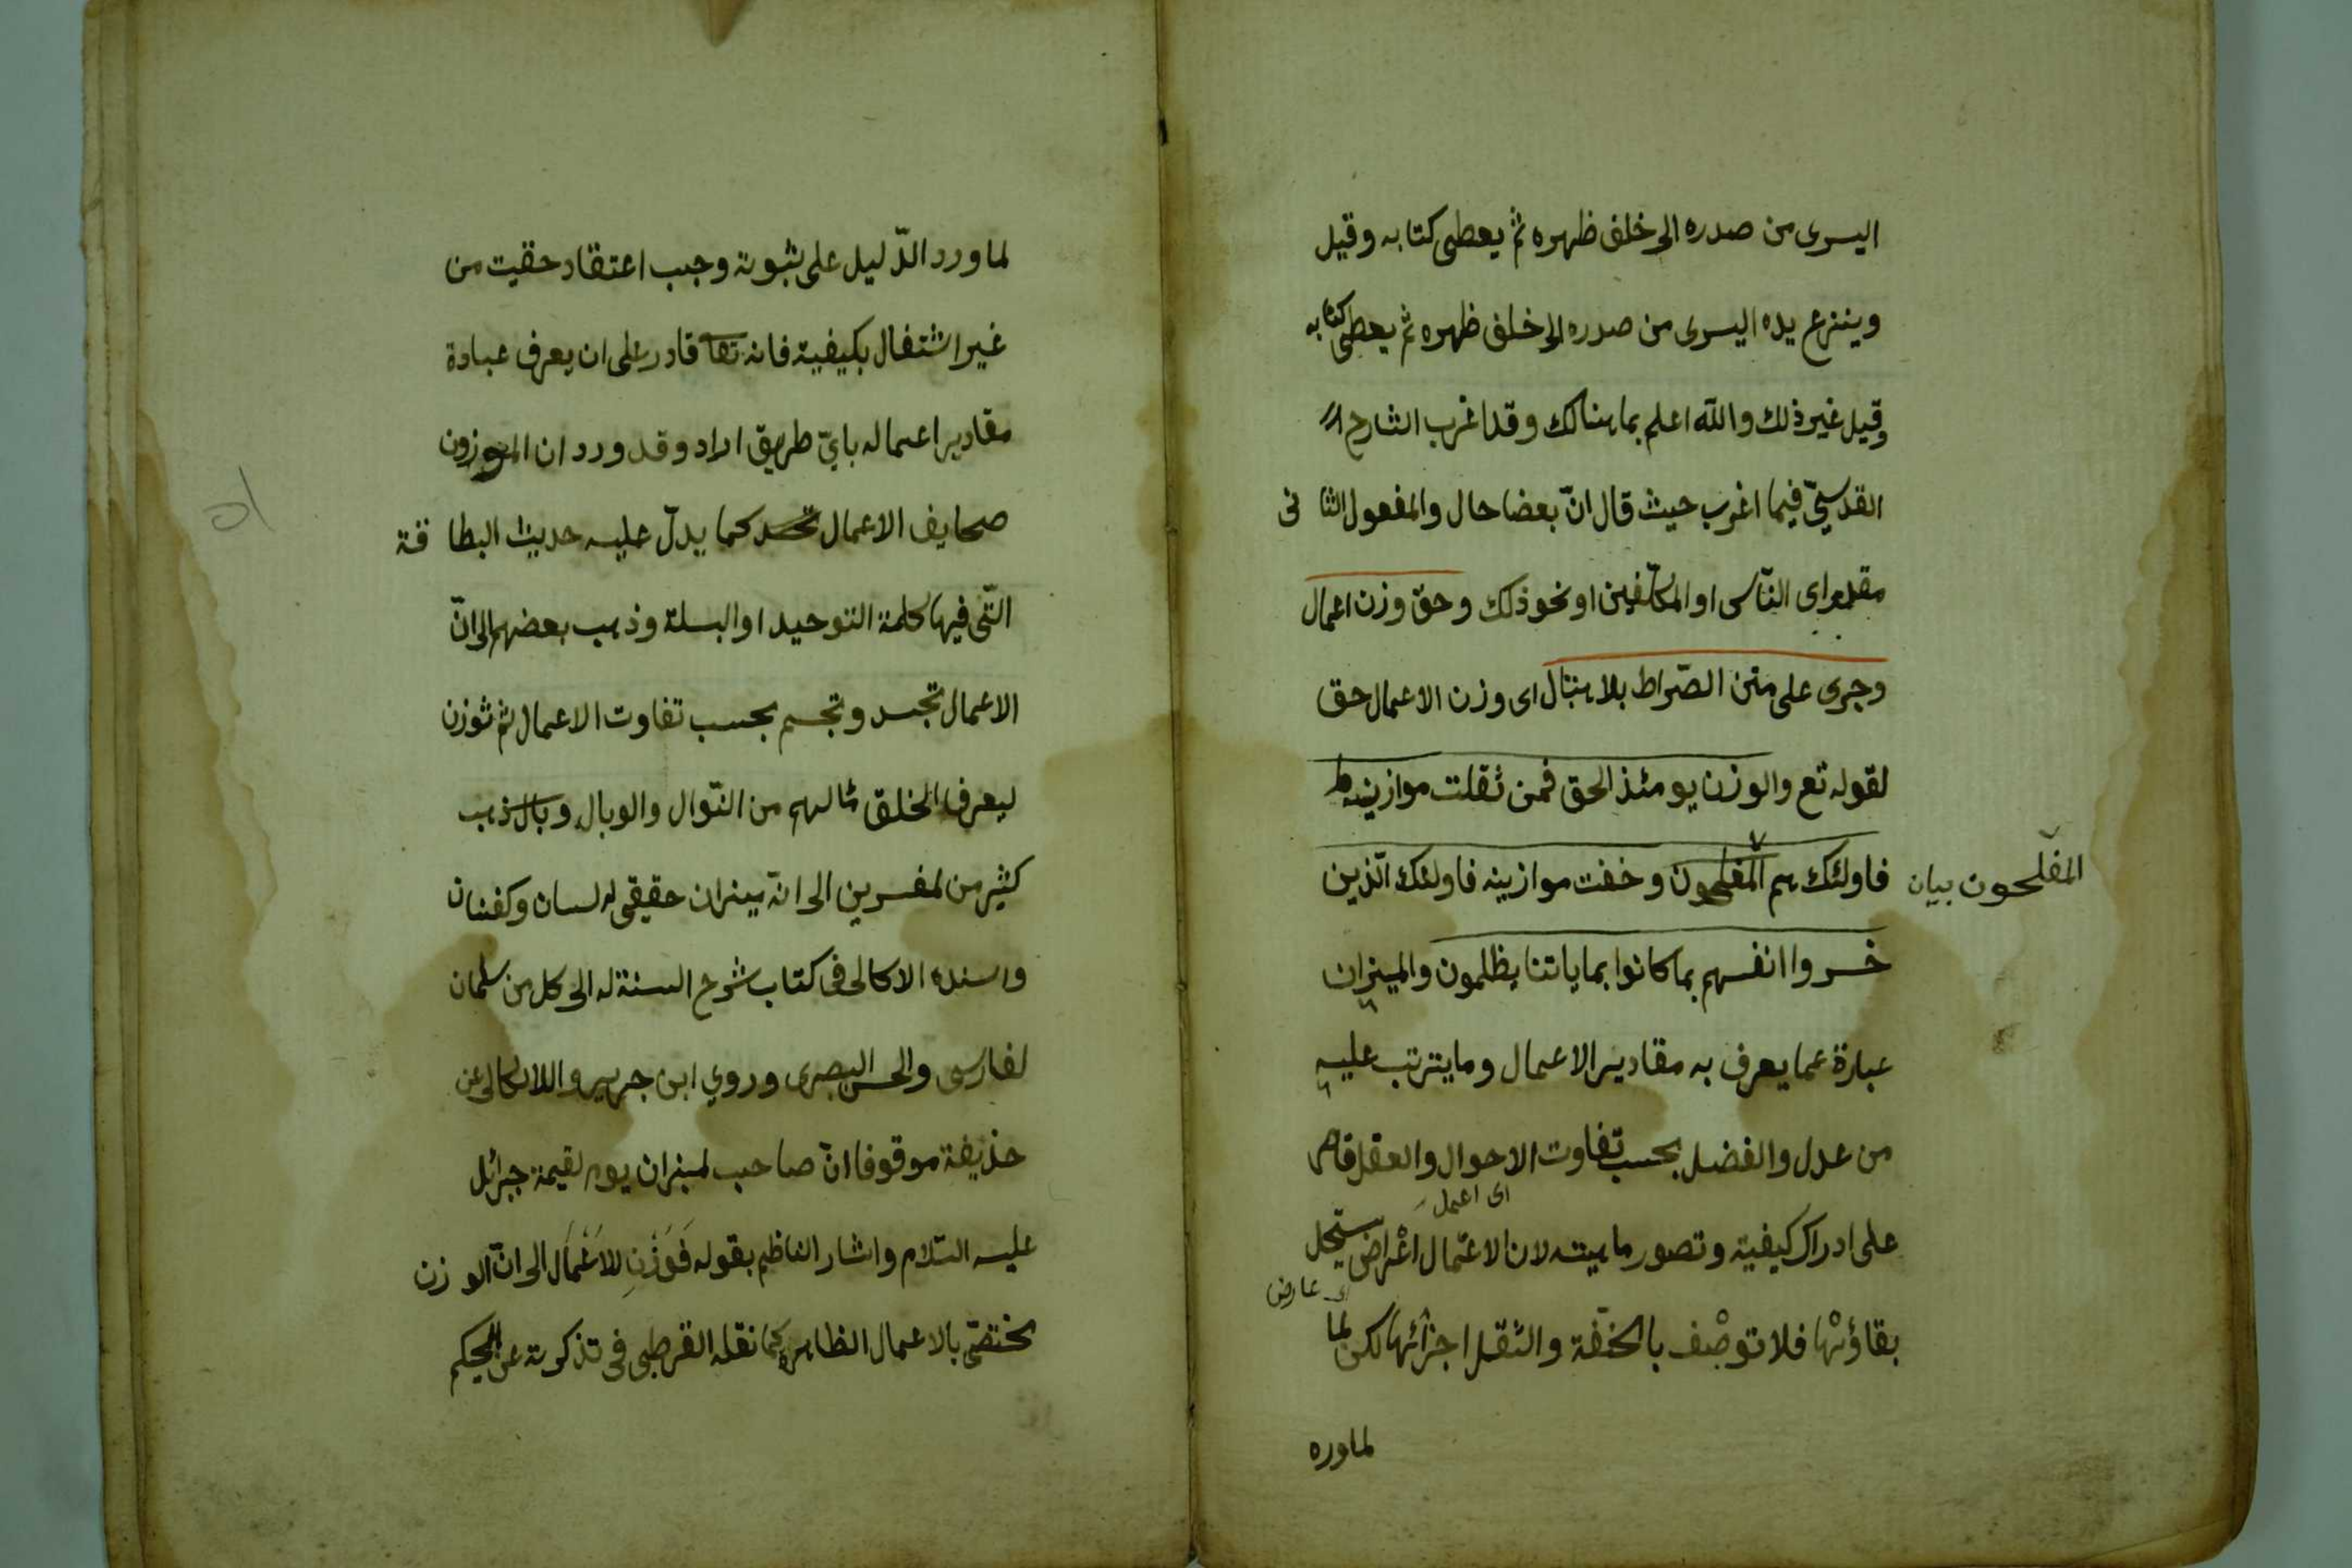 اليسرى من صدره الى خلف ظهره ثم يعطى كتابه وقيل
وينزع يده اليسرى من صدره الى خلف ظهره ثم يعطى كتابه
وقيل غير ذلك والله اعلم بما هنالك وقد اغرب الشارح
القدسيّ فيما اغرب حيث قال انّ بعضا حال والمفعول الثا نى
مقدر اى النّاس او المكلّفين او نحو ذلك وحق وزن اعمال
وجرى على متن الصّراط بلا اهتبال اى وزن الاعمال حق
لقوله تع والوزن يومئذ الحق فمن ثقلت موازينه
فاولئك هم المفلحون وخفت موازينه فاولئك الّذين
المفلحون بيان
خسروا انفسهم بما كانوا باياتنا يظلمون والميزان
عبارة عما يعرف به مقادير الاعمال وما يترتب عليه
من عدل والفضل بحسب تفاوت الاحوال والعقل قاصر
اى اعمل
على ادراك كيفيته وتصور ماهيته لان الاعمال اعْراض يستحيل
اى عارض
بقاؤها فلا توصف بالخفّة والثقل اجزائها لكن لما
لماورد
لما ورد الدّليل على ثبوته وجب اعتقاد حقيت من
غير اشتغال بكيفية فانه تعا قادر على ان يعرف عباده
مقادير اعماله بايّ طريق اراد وقد ورد ان الموزون
صحايف الاعمال كما يدلّ عليه حديث البطا قة
التّى فيها كلمة التوحيد او البسلة وذهب بعضهم الى انّ
الاعمال تجسد وتجسم بحسب تفاوت الاعمال ثم توزن
ليعرف الخلق مالهم من النّوال والوبال وبال ذهب
كثير من لمفسرين الى انه ميزان حقيقى له لسان وكفتان
واسنده الاكالى فى كتاب شرح السنة له الى كل من سلمان
لفارسى والحسن البصرى وروي ابن جرير واللالكالى عن
حذيفة موقوفا انّ صاحب لميزان يوم لقيمة جبرائل
عليه السّلام واشار الناظم بقوله فَوَزْنِ للاَعْمَال الى انّ الو زن
يختصّ بالاعمال الظاهره كما نقله القرطبى فى تذكرته عن الحكيم